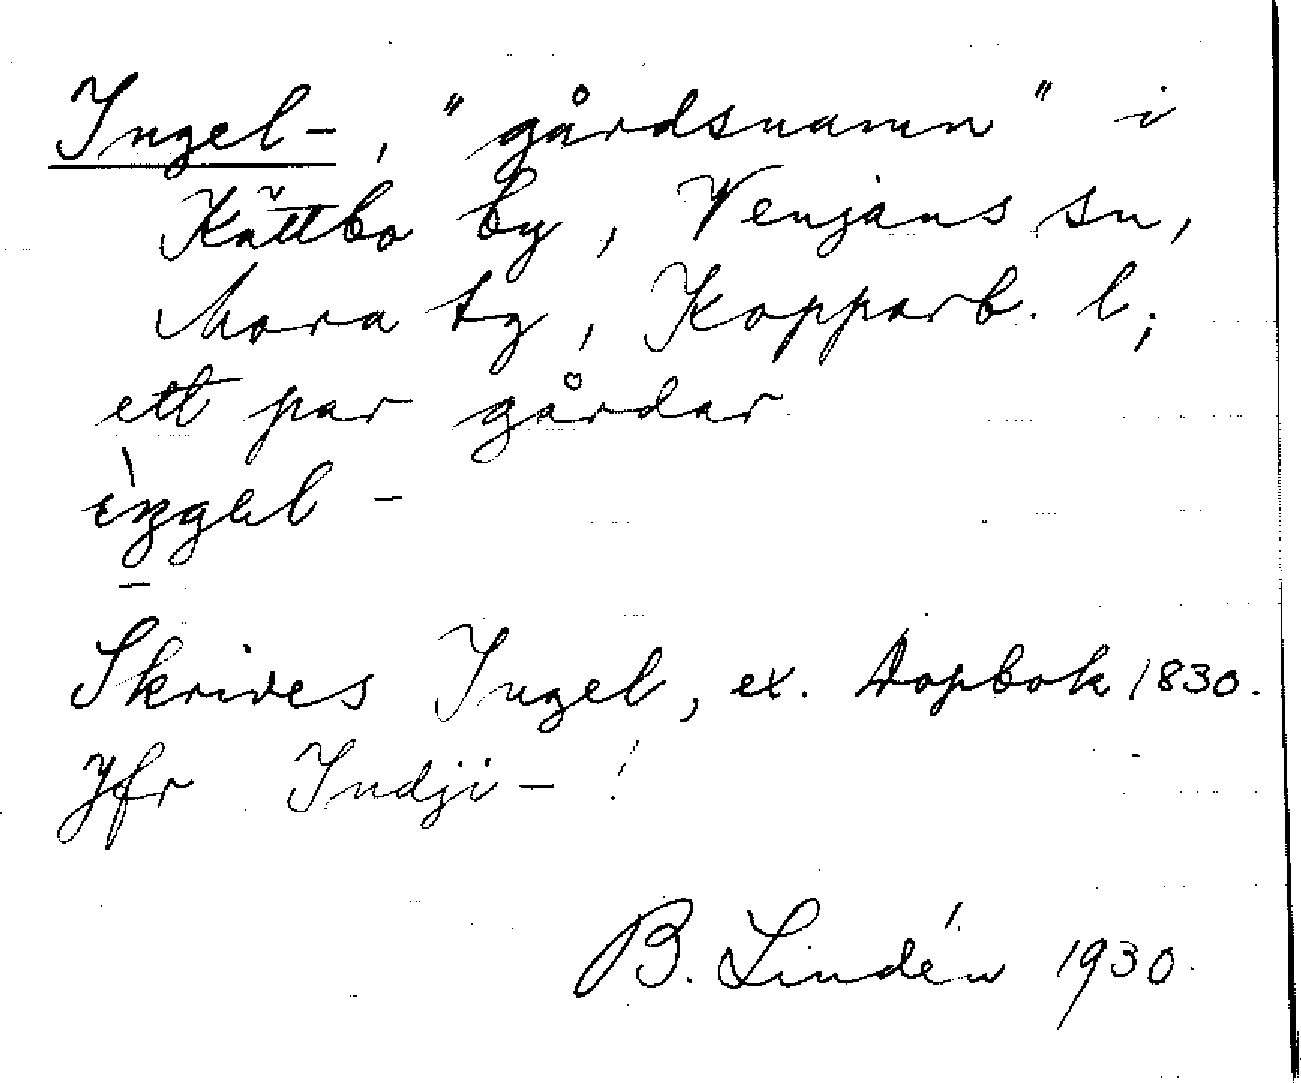 Ingel-, "gårdsnamn" i
Kättbo by, Venjans sn,
Mora tg, Kopparb. l;
ett par gårdar
Skrives Ingel, ex. Dopbok 1830.
Jfr Indji- !
B. Lindén 1930.